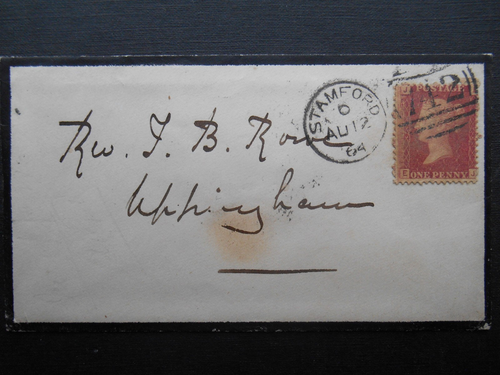 STAMFORD
D
AU 12
64
POSTAGE
ONE PENNY
E J
Rev. J. B. Rowe
Uppingham